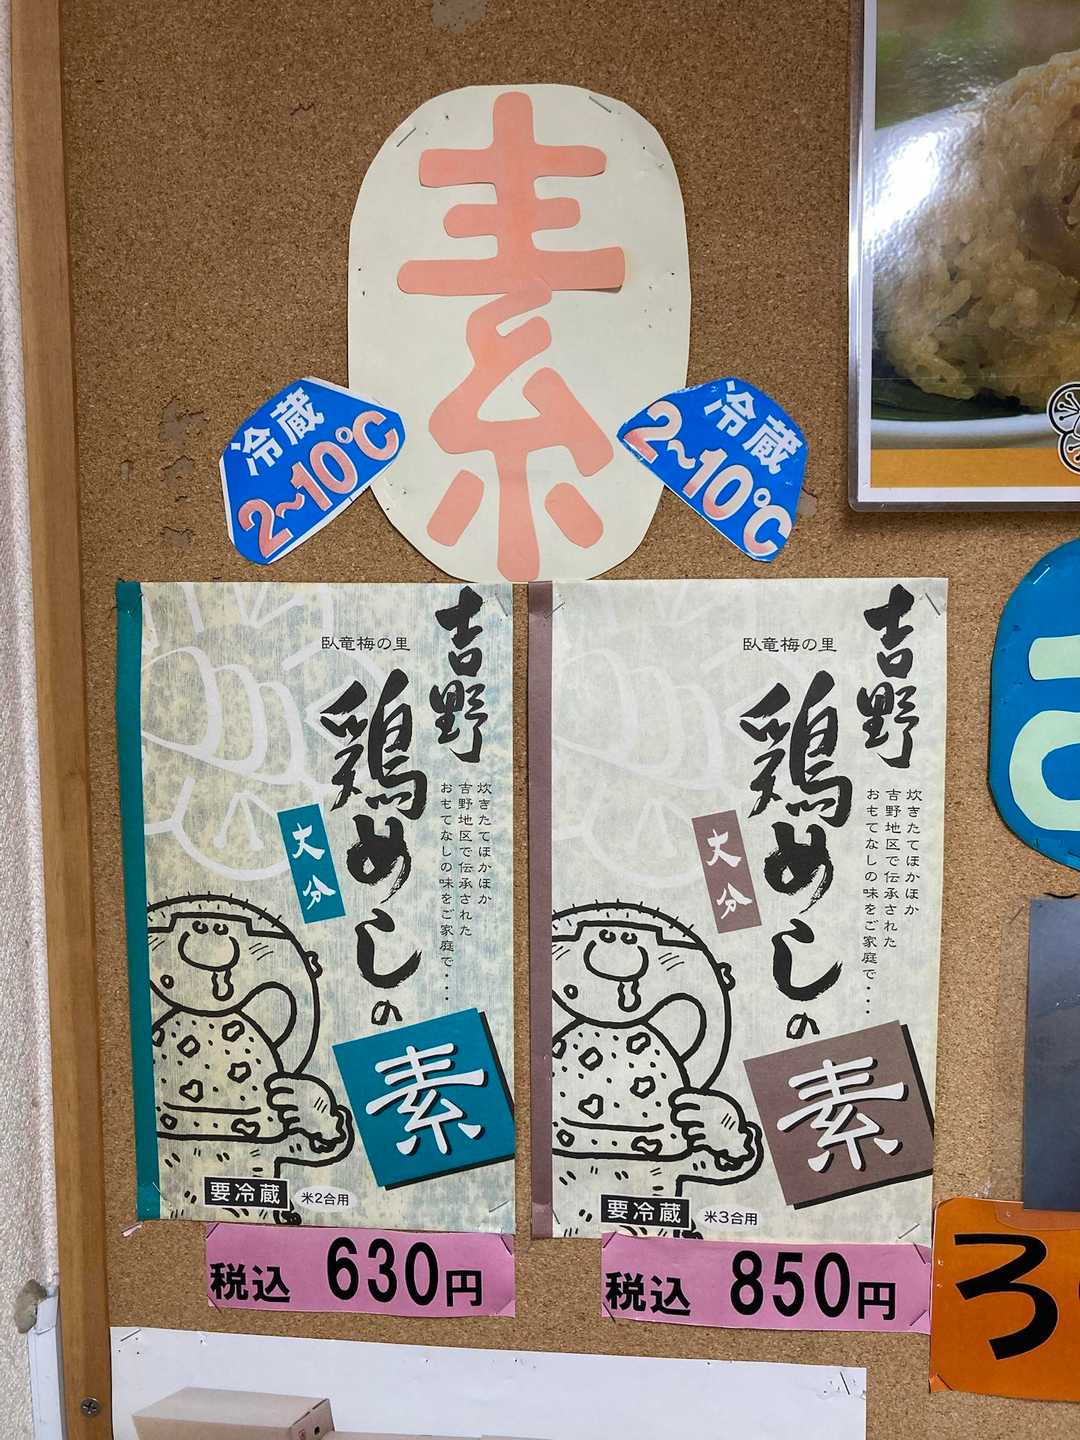 素
冷蔵
2~10℃
冷蔵
2~10℃
吉野
臥竜梅の里
鶏めしの
素
大分
炊きたてほかほか
吉野地区で伝承された
おもてなしの味をご家庭で・・・
要冷蔵
米2合用
税込 630円
吉野
臥竜梅の里
鶏めしの
素
大分
炊きたてほかほか
吉野地区で伝承された
おもてなしの味をご家庭で・・・
要冷蔵
米3合用
税込 850円